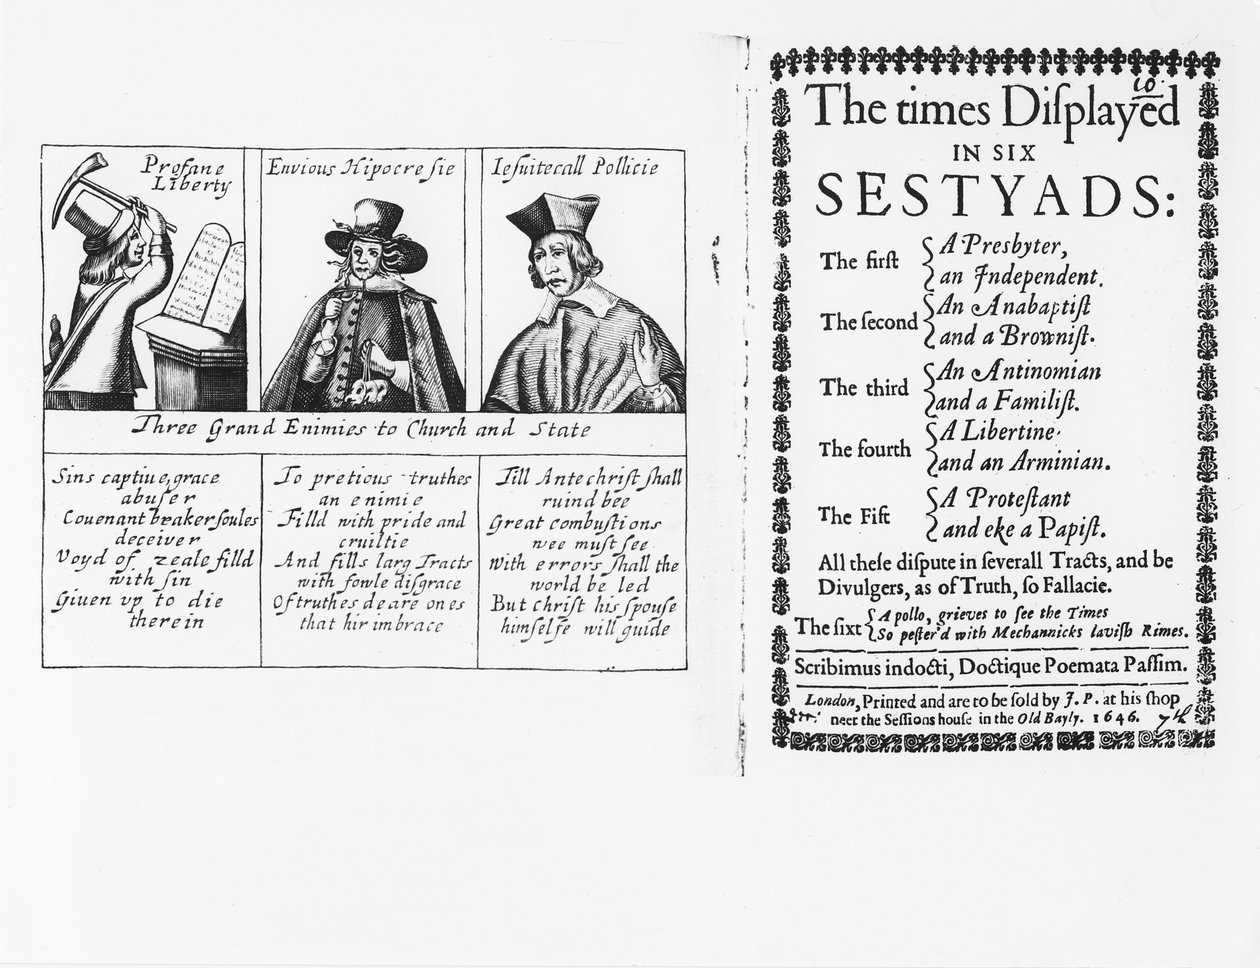 Profane
Liberty
Envious Hipocresie
Iesuitecall Pollicie
Three Grand Enimies to Church and State
Sins captiue, grace
abuser
Couenant breaker soules
deceiver
Voyd of zeale filld
with sin
Giuen vp to die
therein
To pretious truthes
an enimie
Filld with pride and
cruiltie
And fills larg Tracts
with fowle disgrace
Of truthes deare ones
that hir imbrace
Till Antechrist shall
ruind bee
Great combustions
wee must see
With errors shall the
world be led
But christ his spouse
himselfe will guide
10.
The times Diſplayed
IN SIX
SESTYADS:
The firſt { A Presbyter,
an Independent.
The ſecond { An Anabaptiſt
and a Browniſt.
The third { An Antinomian
and a Familiſt.
The fourth { A Libertine.
and an Arminian.
The Fift { A Proteſtant
and eke a Papiſt.
All theſe diſpute in ſeverall Tracts, and be
Divulgers, as of Truth, ſo Fallacie.
The ſixt { Apollo, grieves to ſee the Times
So peſter'd with Mechannicks laviſh Rimes.
Scribimus indocti, Doctique Poemata Paſſim.
London, Printed and are to be ſold by J. P. at his ſhop
neer the Seſſions houſe in the Old Bayly. 1646. 7th